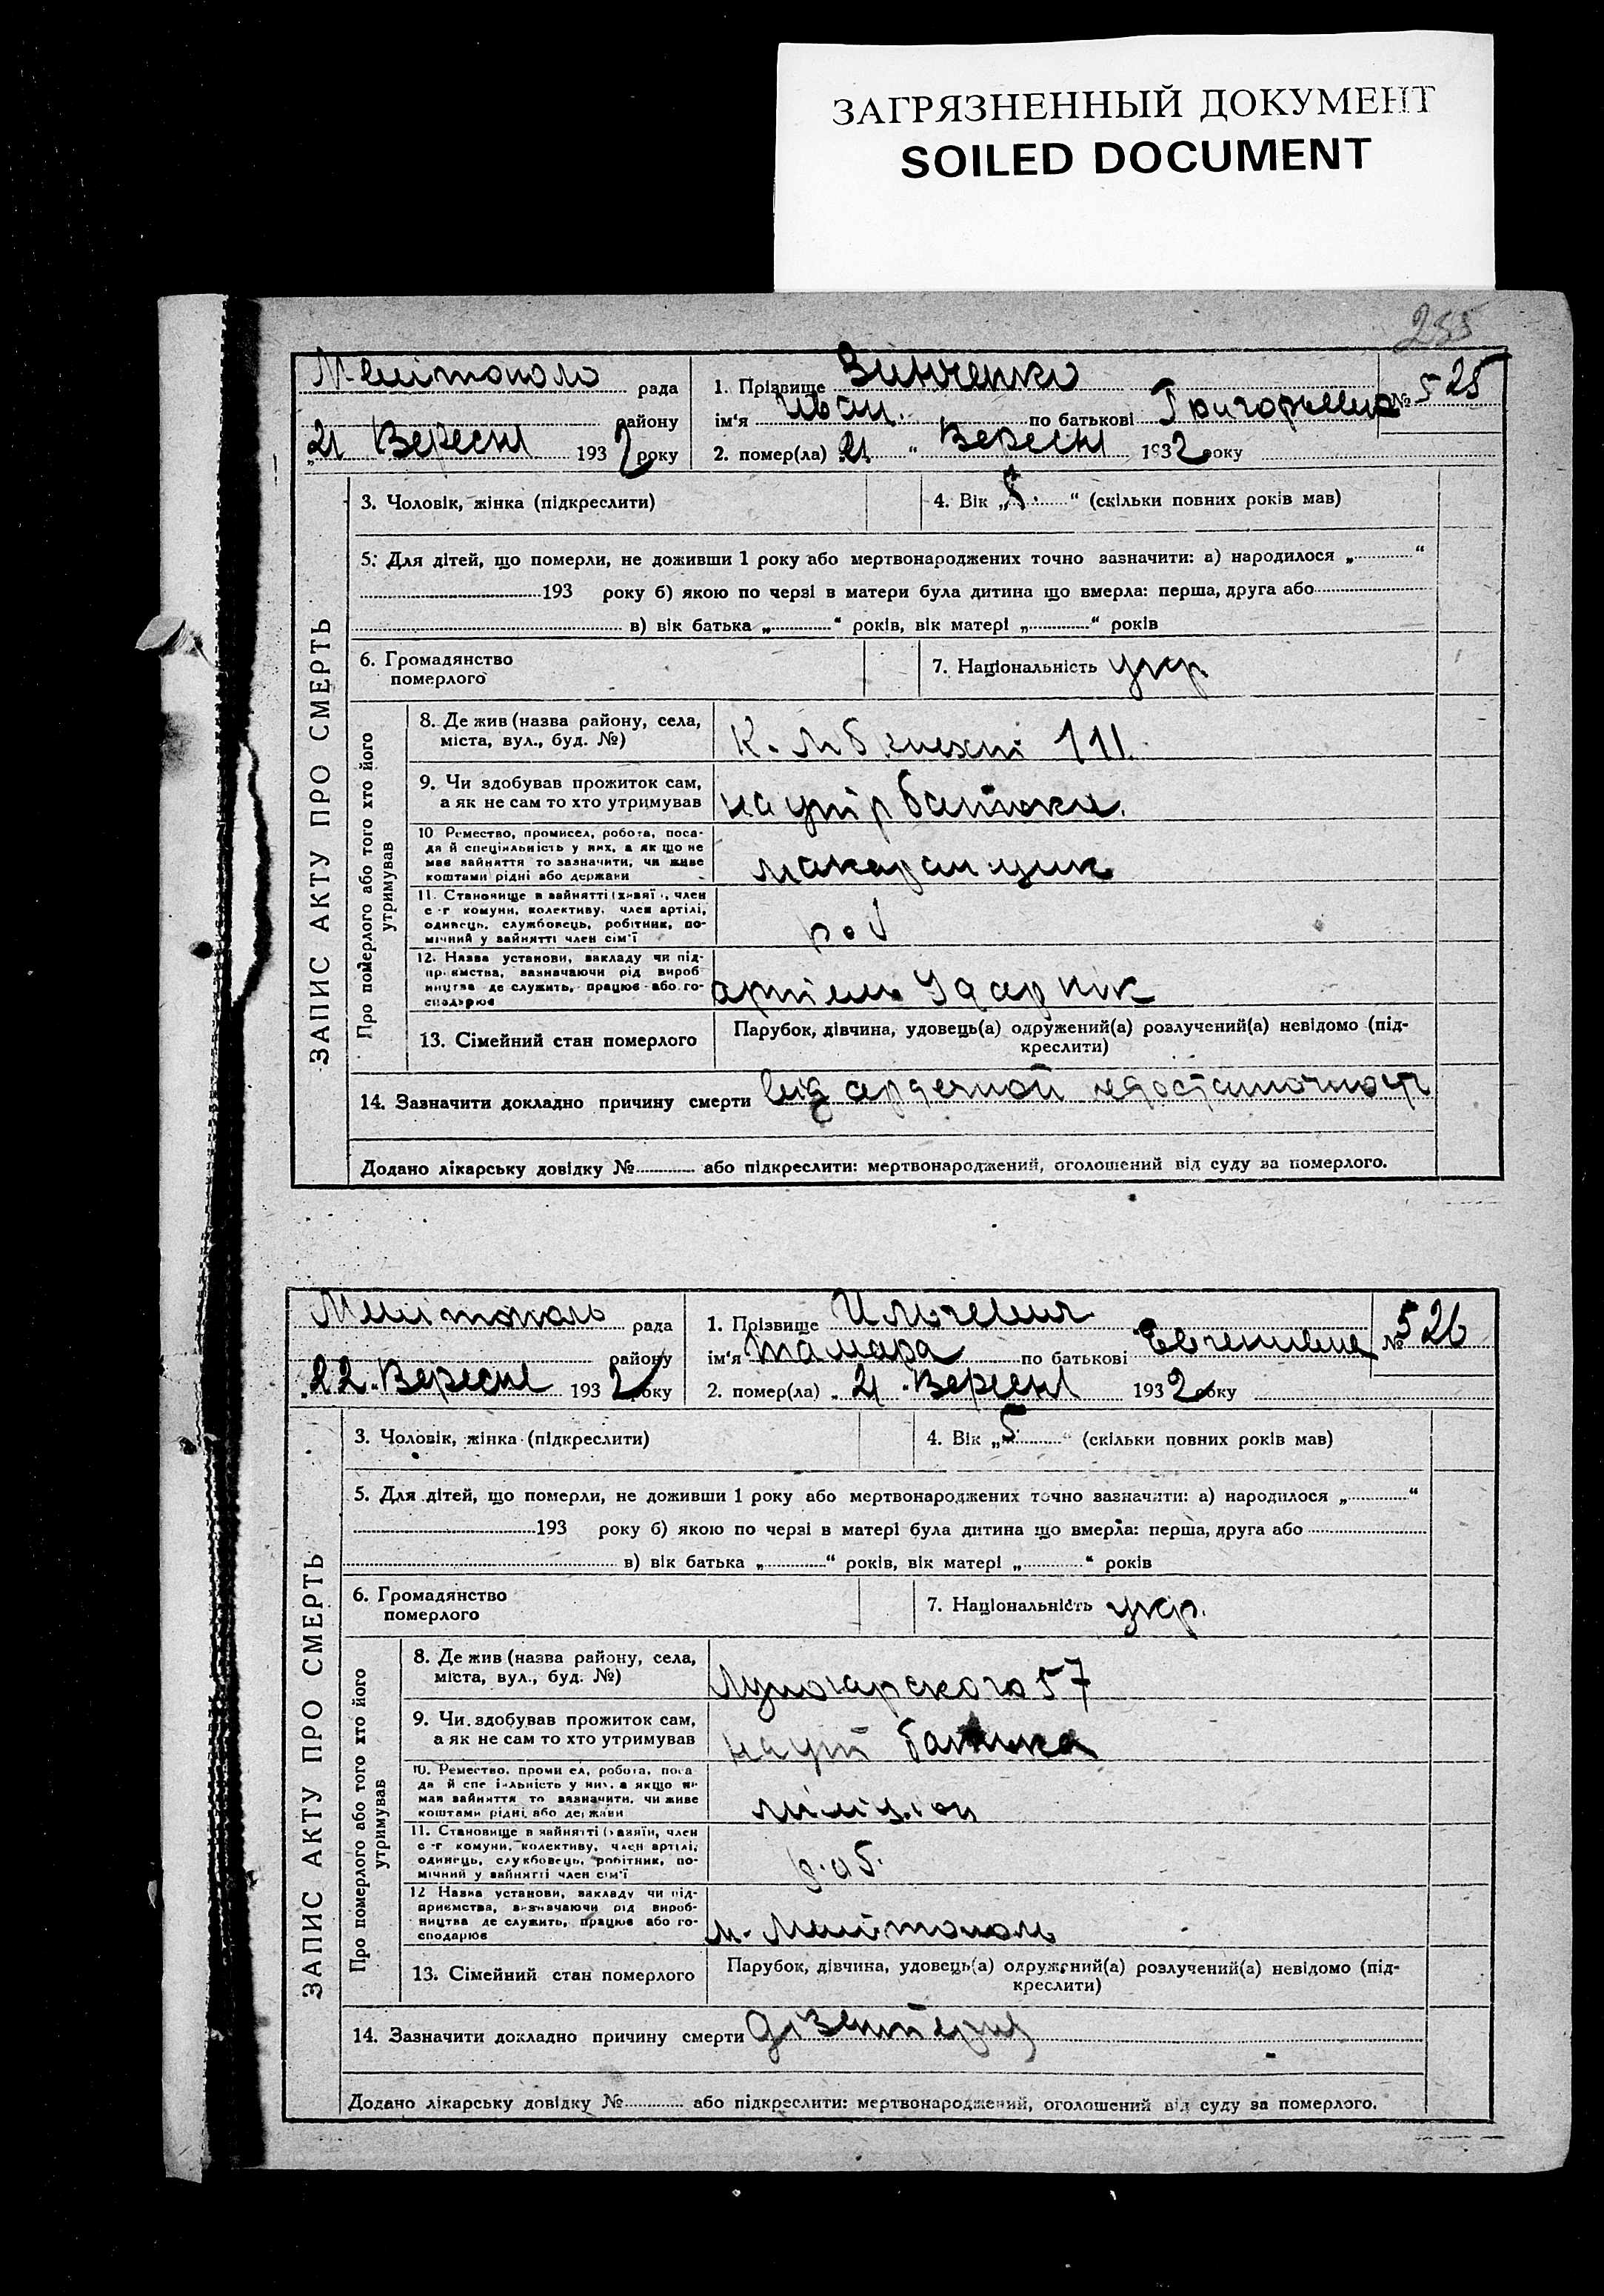 ЗАГРЯЗНЕННЫЙ ДОКУМЕНТ
SOILED DOCUMENT
255
Мелітополь рада
району
"21 Вересня 1932 року
1. Прізвище Зинченко
ім'я Иван. по батькові
№ 525
2. помер(ла) "21 " Вересня 1932 року
ЗАПИС АКТУ ПРО СМЕРТЬ
3. Чоловік, жінка (підкреслити)
4. Вік " " (скільки повних років мав)
5. Для дітей, що померли, не доживши 1 року або мертвонароджених точно зазначити: а) народилося „ “
193 року б) якою по черзі в матери була дитина що вмерла: перша, друга або
в) вік батька „ “ років, вік матері „ “ років
6. Громадянство
померлого
7. Національність укр
Про померлого або того хто його
утримував
8. Де жив (назва району, села,
міста, вул., буд. №)
К. Лібкнехті 111.
9. Чи здобував прожиток сам,
а як не сам то хто утримував
на утр батька.
10 Ремество, промисел, робота, поса-
да й спеціяльність у них, а як що не
мав зайняття то зазначити, чи живе
коштами рідні або держави
11. Становище в зайнятті (хазяї , член
с-г комуни, колективу, член артілі,
одинець, службовець, робітник, по-
мічний у зайнятті член сім'ї
роб
12. Назва установи, закладу чи під-
приємства, зазначаючи рід вироб
ництва де служить, працює або го-
сподарює
артіль Ударник
13. Сімейний стан померлого
Парубок, дівчина, удовець(а) одружений(а) розлучений(а) невідомо (під-
креслити)
14. Зазначити докладно причину смерти від сердечной недостаточност
Додано лікарську довідку № або підкреслити: мертвонароджений, оголошений від суду за померлого.
Мелітополь рада
району
„22 Вересня 1932 року
1. Прізвище
ім'я Тамара по батькові
№ 526
2. помер(ла) „ 21 Вересня 1932 року
ЗАПИС АКТУ ПРО СМЕРТЬ
3. Чоловік, жінка (підкреслити)
4. Вік „5 “ (скільки повних років мав)
5. Для дітей, що померли, не доживши 1 року або мертвонароджених точно зазначити: а) народилося „ “
193 року б) якою по черзі в матері була дитина що вмерла: перша, друга або
в) вік батька „ “ років, вік матері „ “ років
6. Громадянство
померлого
7. Національність укр.
Про померлого або того хто його
утримував
8. Де жив (назва району, села,
міста, вул., буд. №)
Луначарского 57
9. Чи здобував прожиток сам,
а як не сам то хто утримував
на утр батька
10. Ремество, промисел, робота, поса-
да й спеціяльність у них, а якщо не
мав зайняття то зазначити, чи живе
коштами рідні або держави
міліціон
11. Становище в зайнятті (хазяїн, член
с-г комуни, колективу, член артілі,
одинець, службовець, робітник, по-
мічний у зайнятті член сім'ї
роб.
12 Назва установи, закладу чи під-
приємства, зазначаючи рід вироб-
ництва де служить, працює або го-
сподарює
м. Мелітополь
13. Сімейний стан померлого
Парубок, дівчина, удовець(а) одружений(а) розлучений(а) невідомо (під-
креслити)
14. Зазначити докладно причину смерти дізентерия
Додано лікарську довідку № або підкреслити: мертвонароджений, оголошений від суду за померлого.